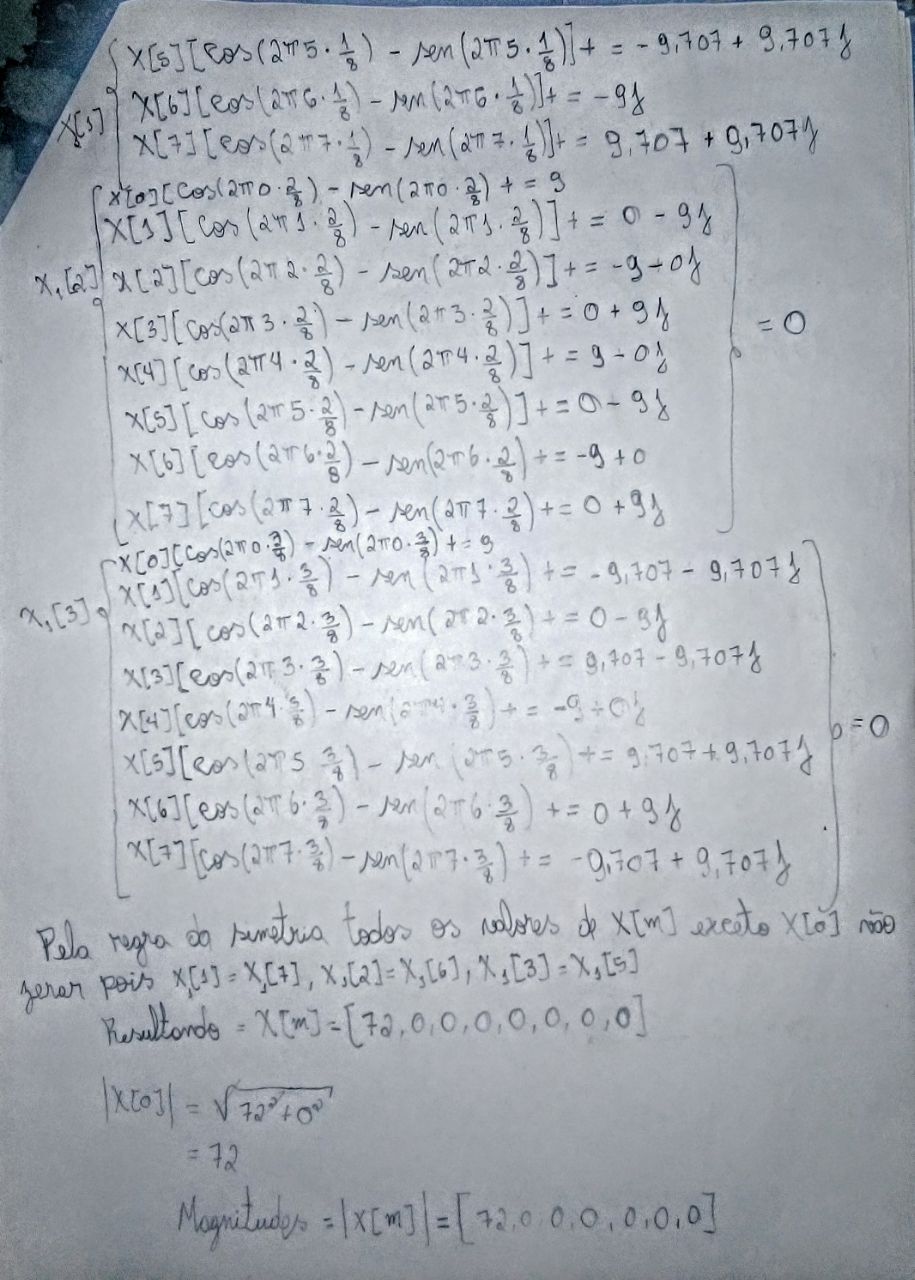 X[5][cos(2π5·1/8) - sen(2π5·1/8)]+ = -9,707 + 9,707j
X[6][cos(2π6·1/8) - sen(2π6·1/8)]+ = -9j
X[7][cos(2π7·1/8) - sen(2π7·1/8)]+ = 9,707 + 9,707j
X[0][cos(2π0·2/8) - sen(2π0·2/8) + = 9
X[1][cos(2π1·2/8) - sen(2π1·2/8)]+ = 0 - 9j
X₁[2] X[2][cos(2π2·2/8) - sen(2π2·2/8)]+ = -9 - 0j
X[3][cos(2π3·2/8) - sen(2π3·2/8)]+ = 0 + 9j = 0
X[4][cos(2π4·2/8) - sen(2π4·2/8)]+ = 9 - 0j
X[5][cos(2π5·2/8) - sen(2π5·2/8)]+ = 0 - 9j
X[6][cos(2π6·2/8) - sen(2π6·2/8) + = -9 + 0
X[7][cos(2π7·2/8) - sen(2π7·2/8) + = 0 + 9j
X[0][cos(2π0·3/8) - sen(2π0·3/8) + = 9
X₁[3] X[1][cos(2π1·3/8) - sen(2π1·3/8) + = -9,707 - 9,707j
X[2][cos(2π2·3/8) - sen(2π2·3/8) + = 0 - 9j
X[3][cos(2π3·3/8) - sen(2π3·3/8) + = 9,707 - 9,707j
X[4][cos(2π4·3/8) - sen(2π4·3/8) + = -9 + 0j
X[5][cos(2π5 3/8) - sen(2π5·3/8) + = 9,707 + 9,707j = 0
X[6][cos(2π6·3/8) - sen(2π6·3/8) + = 0 + 9j
X[7][cos(2π7·3/8) - sen(2π7·3/8) + = -9,707 + 9,707j
Pela regra da simetria todos os valores de X[m] exceto X[0] não
zerar pois X₁[1] = X₁[7], X₁[2] = X₁[6], X₁[3] = X₁[5]
Resultando = X[m] = [72,0,0,0,0,0,0,0]
|X[0]| = √72²+0²
= 72
Magnitudes = |X[m]| = [72,0,0,0,0,0,0]